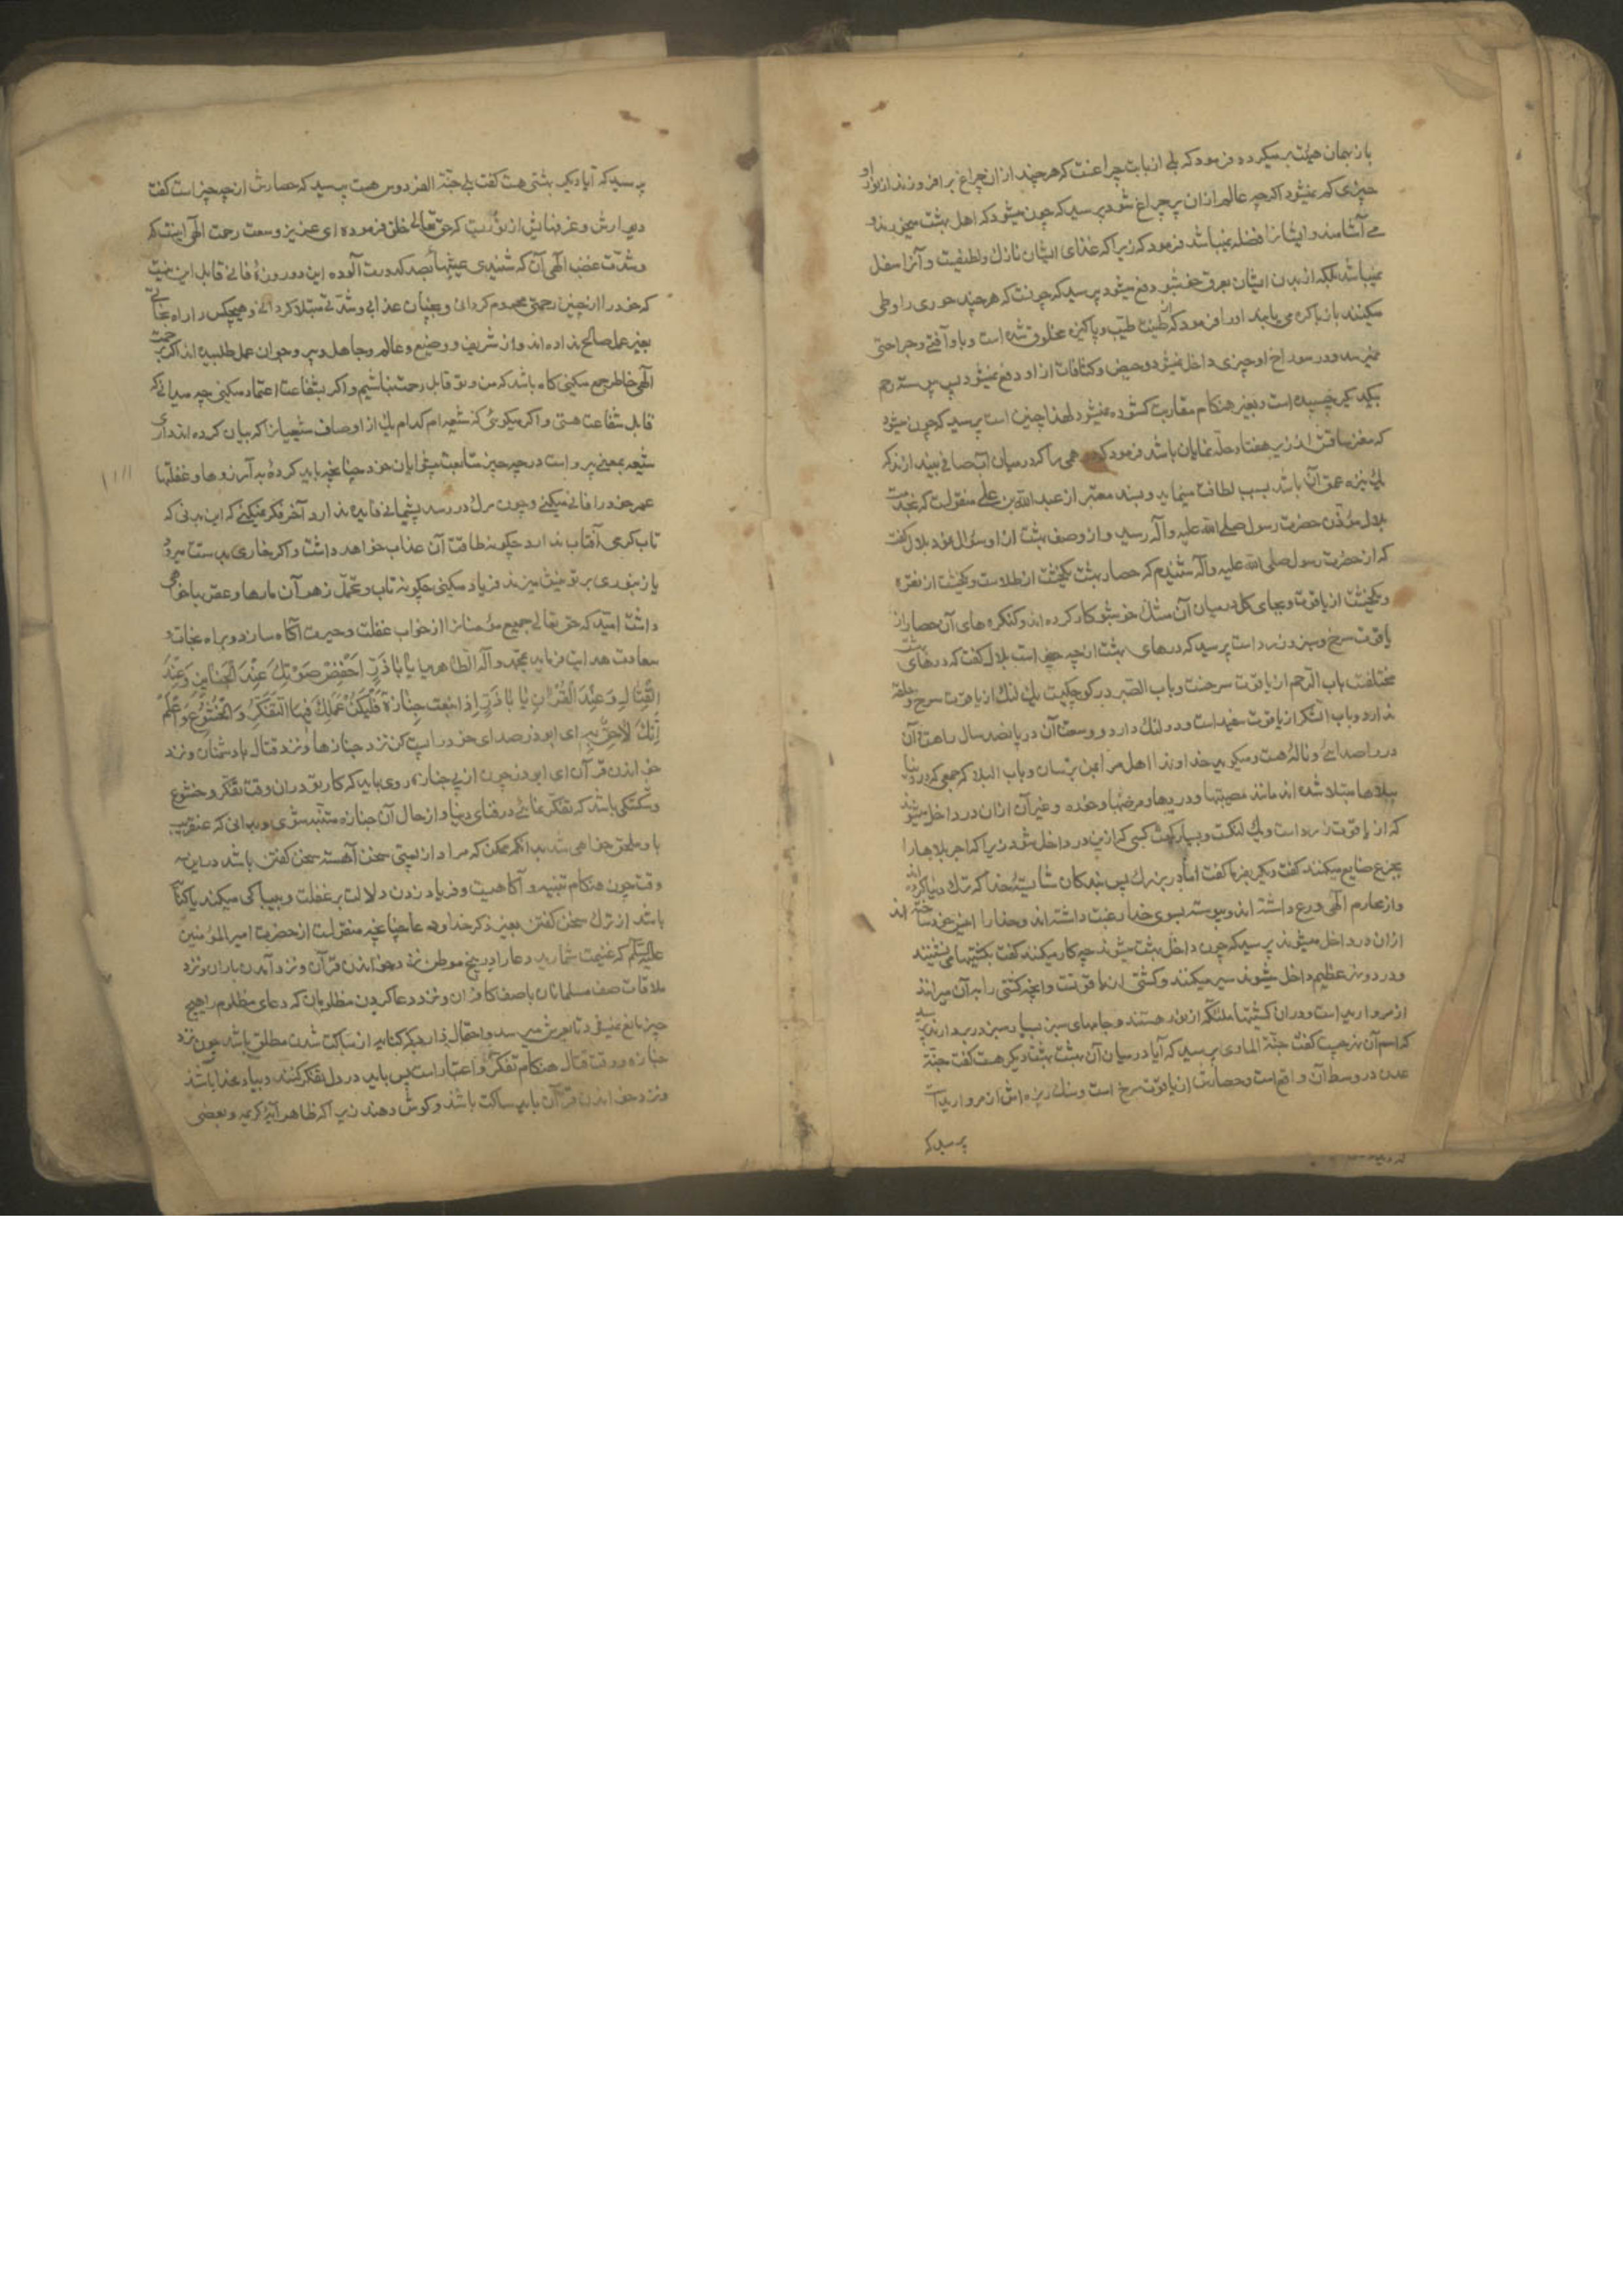 باز بهمان هیئت بر میکردد فرمود که بلی از بابت چراغست که هرچند از ان چراغ بر افروزند از نور او
چیزی کم نمیشود اکرچه عالم از ان پر چراغ شود پرسید که چون میشود که اهل بهشت میخورند و
می آشامند و ایشانرا فضله نمیباشد فرمود که زیرا که غذای ایشان نازک و لطیفست و آنرا سفل
نمیباشد بلکه از بدن ایشان بعرق خوشبو دفع میشود پرسید که چونست که هرچند حوری را وطی
میکنند باز باکره می یابند او را فرمود که از طینت طیب و پاکیزه مخلوق شده است و باو آفتی و جراحتی
نمیرسد و در سوراخ او چیزی داخل نمیشود و حیض و کثافات از او دفع نمیشود پس پیوسته رحم
بیکدیکر چسبیده است و بغیر هنکام مقاربت کشوده نمیشود لهذا چنین است پرسید که چون میشود
که مغز ساقش از زیر هفتاد حله نمایان باشد فرمود که درهمی را اکر در میان آب صافی بیندازند که
یک نیزه عمق آن باشد بسبب لطافت مینماید و بسند معتبر از عبد الله بن علی منقولست که بخدمت
بلال مؤذن حضرت رسول صلی الله علیه و آله رسید و از وصف بهشت از او سؤال نمود بلال کفت
که از حضرت رسول صلی الله علیه و آله شنیدم که حصار بهشت یکخشت از طلاست و یکخشت از نقره
و یکخشت از یاقوت و بجای کل در میان آن مشک خوشبو کار کرده اند و کنکره های آن حصار از
یاقوت سرخ و سبز و زرد است پرسید که درهای بهشت از چه چیز است بلال کفت که درهای بهشت
مختلفست باب الرحم از یاقوت سرخست و باب الصبر در کوچکیست یک لنک از یاقوت سرخ و حلقه
ندارد و باب الشکر از یاقوت سفید است و دو لنک دارد و وسعت آن در پانصد سال راهست و آن
در را صدائی و ناله هست و میکوید خداوندا اهل مرا بمن برسان و باب البلا که جمعی که در دنیا
ببلاها مبتلا شده اند مانند مصیبتها و دردها و مرضها و خوره و غیر آن از ان در داخل میشوند
که از یاقوت زرد است و یک لنکست و بسیار کمست کسی که ازین در داخل شود زیرا که اجر بلاها را
بجزع ضایع میکنند کفت دیکر بفرما کفت اما در بزرک پس بندکان شایسته خدا که ترک دنیا کرده اند
و از محارم الهی ورع داشته اند و پیوسته بسوی خدا رغبت داشته اند و خدا را انیس خود ساخته اند
از ان در داخل میشوند پرسید که چون داخل بهشت میشوند چه کار میکنند کفت بکشتیها می نشینند
و در دو نهر عظیم داخل میشوند سیر میکنند و کشتی از یاقوتست و آنچه کشتی را بر آن میرانند
از مروارید است و در ان کشتیها ملائکه از نور هستند و جامهای سبز بسیار سبز در بر دارند پرسید
که اسم آن نهر چیست کفت جنة الماوی پرسید که آیا در میان آن بهشت بهشت دیکر هست کفت جنة
عدن در وسط آن واقع است و حصارش از یاقوت سرخ است و سنک ریزه اش از مروارید است
پرسید که
پرسید که آیا دیکر بهشتی هست کفت بلی جنة الفردوس هست پرسید که حصارش از چه چیز است کفت
دیوارش و غرفهایش از نوریست که حق تعالی خلق فرموده ای عزیز وسعت رحمت الهی اینست که
و شدت غضب الهی آن که شنیدی عیشهای بصد کدورت آلوده این دو روزهٔ فانی قابل این نیست
که خود را از چنین رحمتی محروم کردانی و بچنان عذابی و شدتی مبتلا کردانی و هیچکس را راه نجاتی
بغیر عمل صالح نداده اند و از شریف و وضیع و عالم و جاهل و پیر و جوان عمل طلبیده اند اکر برحمت
الهی خاطر جمع میکنی کاه باشد که من و تو قابل رحمت نباشیم و اکر بشفاعت اعتماد میکنی چه میدانی که
قابل شفاعت هستی و اکر میکوئی که شیعه ام کدام یک از اوصاف شیعیانرا که بیان کرده اند داری
شیعه بمعنی پیرو است در چه چیز متابعت پیشوایان خود چنانچه باید کردهٔ به آرزوها و غفلتها
عمر خود را فانی میکنی و چون مرک در رسد پشیمانی فایده ندارد آخر فکر نمیکنی که این بدنی که
تاب کرمی آفتاب ندارد چکونه طاقت آن عذاب خواهد داشت و اکر خاری بدستت میرود
یا زنبوری بر تو نیش میزند فریاد میکنی چکونه تاب و تحمل زهر آن مارها و عقربها خواهی
داشت امید که حق تعالی جمیع مؤمنانرا از خواب غفلت و حیرت آکاه سازد و براه نجات و
سعادت هدایت فرماید بمحمد و آله الطاهرین یا اباذر اخفض صوتک عند الجنایز و عند
القتال و عند القرآن یا اباذر اذا تبعت جنازة فلیکن عملک فیها التفکر و الخشوع و اعلم
انک لاحق به ای ابوذر صدای خود را پست کن نزد جنازها و نزد قتال با دشمنان و نزد
خواندن قرآن ای ابوذر چون از پی جنازه روی باید که کار تو در ان وقت تفکر و خشوع
و شکستکی باشد که تفکر نمائی در فنای دنیا و از حال آن جنازه متنبه شوی و بدانی که عنقریب
باو ملحق خواهی شد بدانکه ممکن که مراد از پستی سخن آهسته سخن کفتن باشد در این سه
وقت چون هنکام تنبیه و آکاهیست و فریاد زدن دلالت بر غفلت و بیباکی میکند یا کنایه
باشد از ترک سخن کفتن بغیر ذکر خدا و دعا چنانچه منقولست از حضرت امیر المؤمنین
علیه السلام که غنیمت شمارید دعا را در پنج موطن نزد خواندن قرآن و نزد آمدن باران و نزد
ملاقات صف مسلمانان با صف کافران و نزد دعا کردن مظلومان که دعای مظلوم را هیچ
چیز مانع نمیشود تا بعرش میرسد و احتمال دارد که کنایه از ساکت شدن مطلق باشد چون نزد
جنازه و وقت قتال هنکام تفکر و اعتبار است پس باید در دل تفکر کنند و بیاد خدا باشند
و نزد خواندن قرآن باید ساکت باشند و کوش دهند زیرا که ظاهر آیهٔ کریمه و بعضی